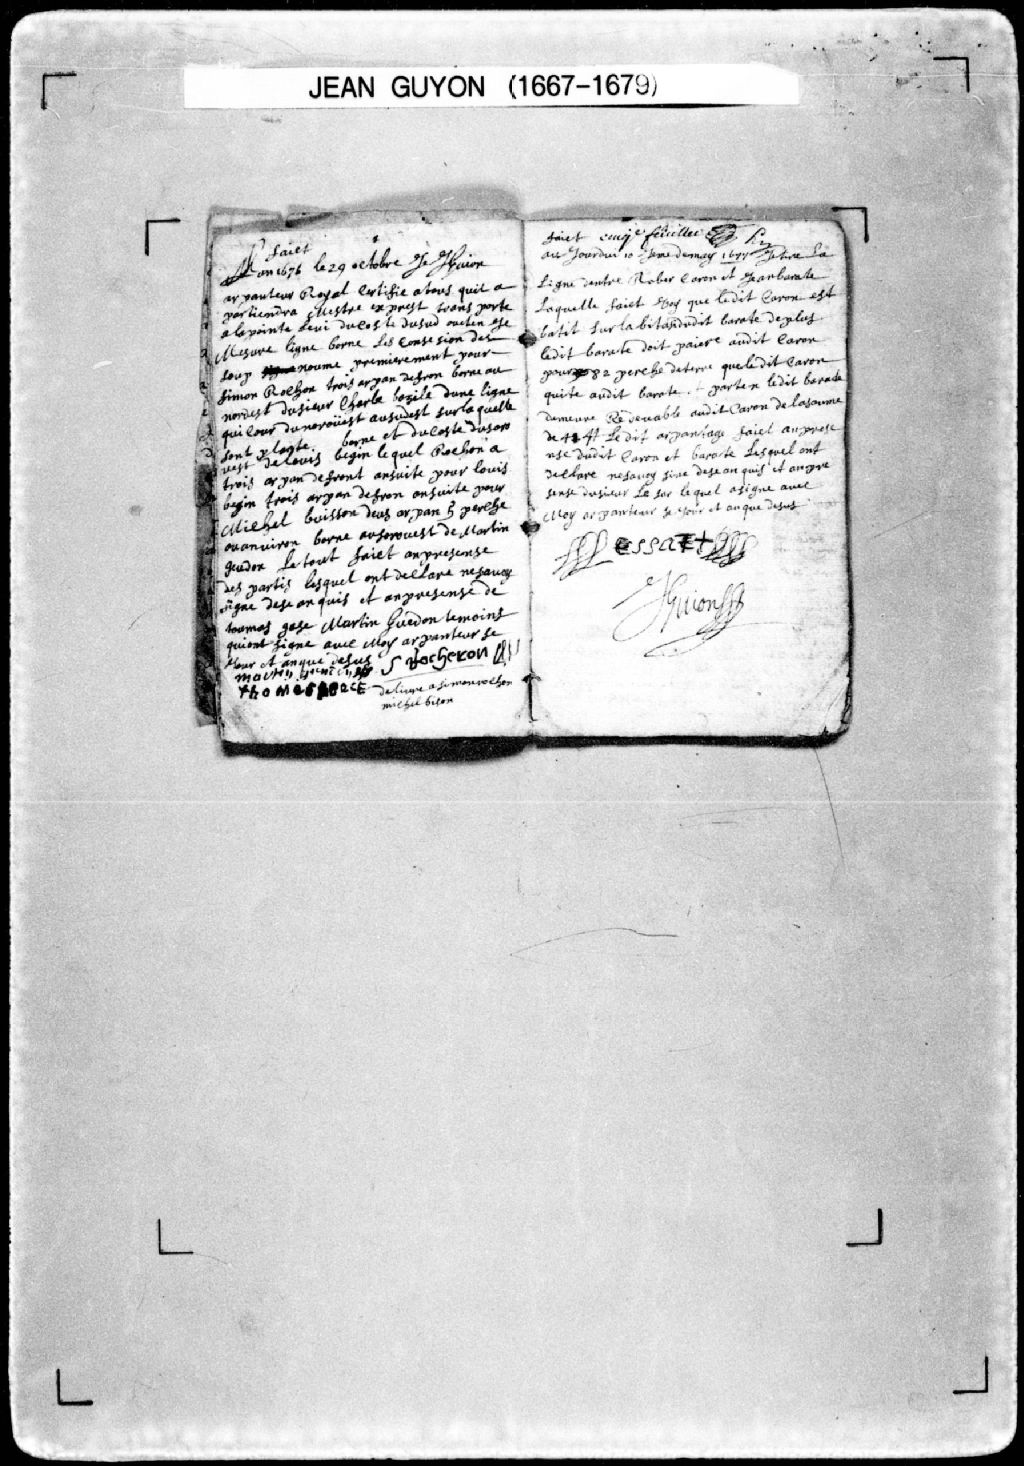 JEAN GUYON (1667-1679)
faict
Lan 1676 le 29 octobre Je JGuion
arpanteur Royal Certifie a tous quil a
partiendra Mestre exprest transporte
a la pointe Levi du coste dusud ou
Mesure ligne borne les Consesion des
soup noume premierement pour
Simon Rochon trois arpan defron borne au
nordest dusieur Charle bazile dune ligne
qui cour du norouest ausudest sur laquelle
sont plante borne et du coste du soro
uest de louis begin lequel Rochon a
trois arpan defront ansuite pour louis
begin trois arpan defron ansuite pour
Michel buisson deus arpan 5 perche
ouanviron borne ausorouest de Martin
guedon le tout faict anpresense
des partis lesquel ont declare nesavoy
signe dese anquis et anpresense de
toumas gose Martin Guedon temoins
quiont signe avec Moy arpanteur se
Jour et anque desus
martin S Rocheron
thomas
delivre a simon rochon
michel bison
faict cinq feuillet
au Jourdui 10 Jeme de may 1677 Jetire la
Ligne dentre Rober Caron et Jean barate
Laquelle faict Voy que ledit Caron est
batit sur labitan dudit barate deplus
ledit barate doit paier audit Caron
pour 82 perche deterre queledit Caron
quite audit barate et parten ledit barate
demeure Redevable audit Caron de lasoume
de 41 ₶ Ledit arpantage faict anprese
nse dudit Caron et barate Lesquel ont
declare nesavoy sine dese anquis et anpre
sense dusieur Le sar lequel asigne avec
Moy arpanteur se Jour et anque desus
Lessart
JGuion